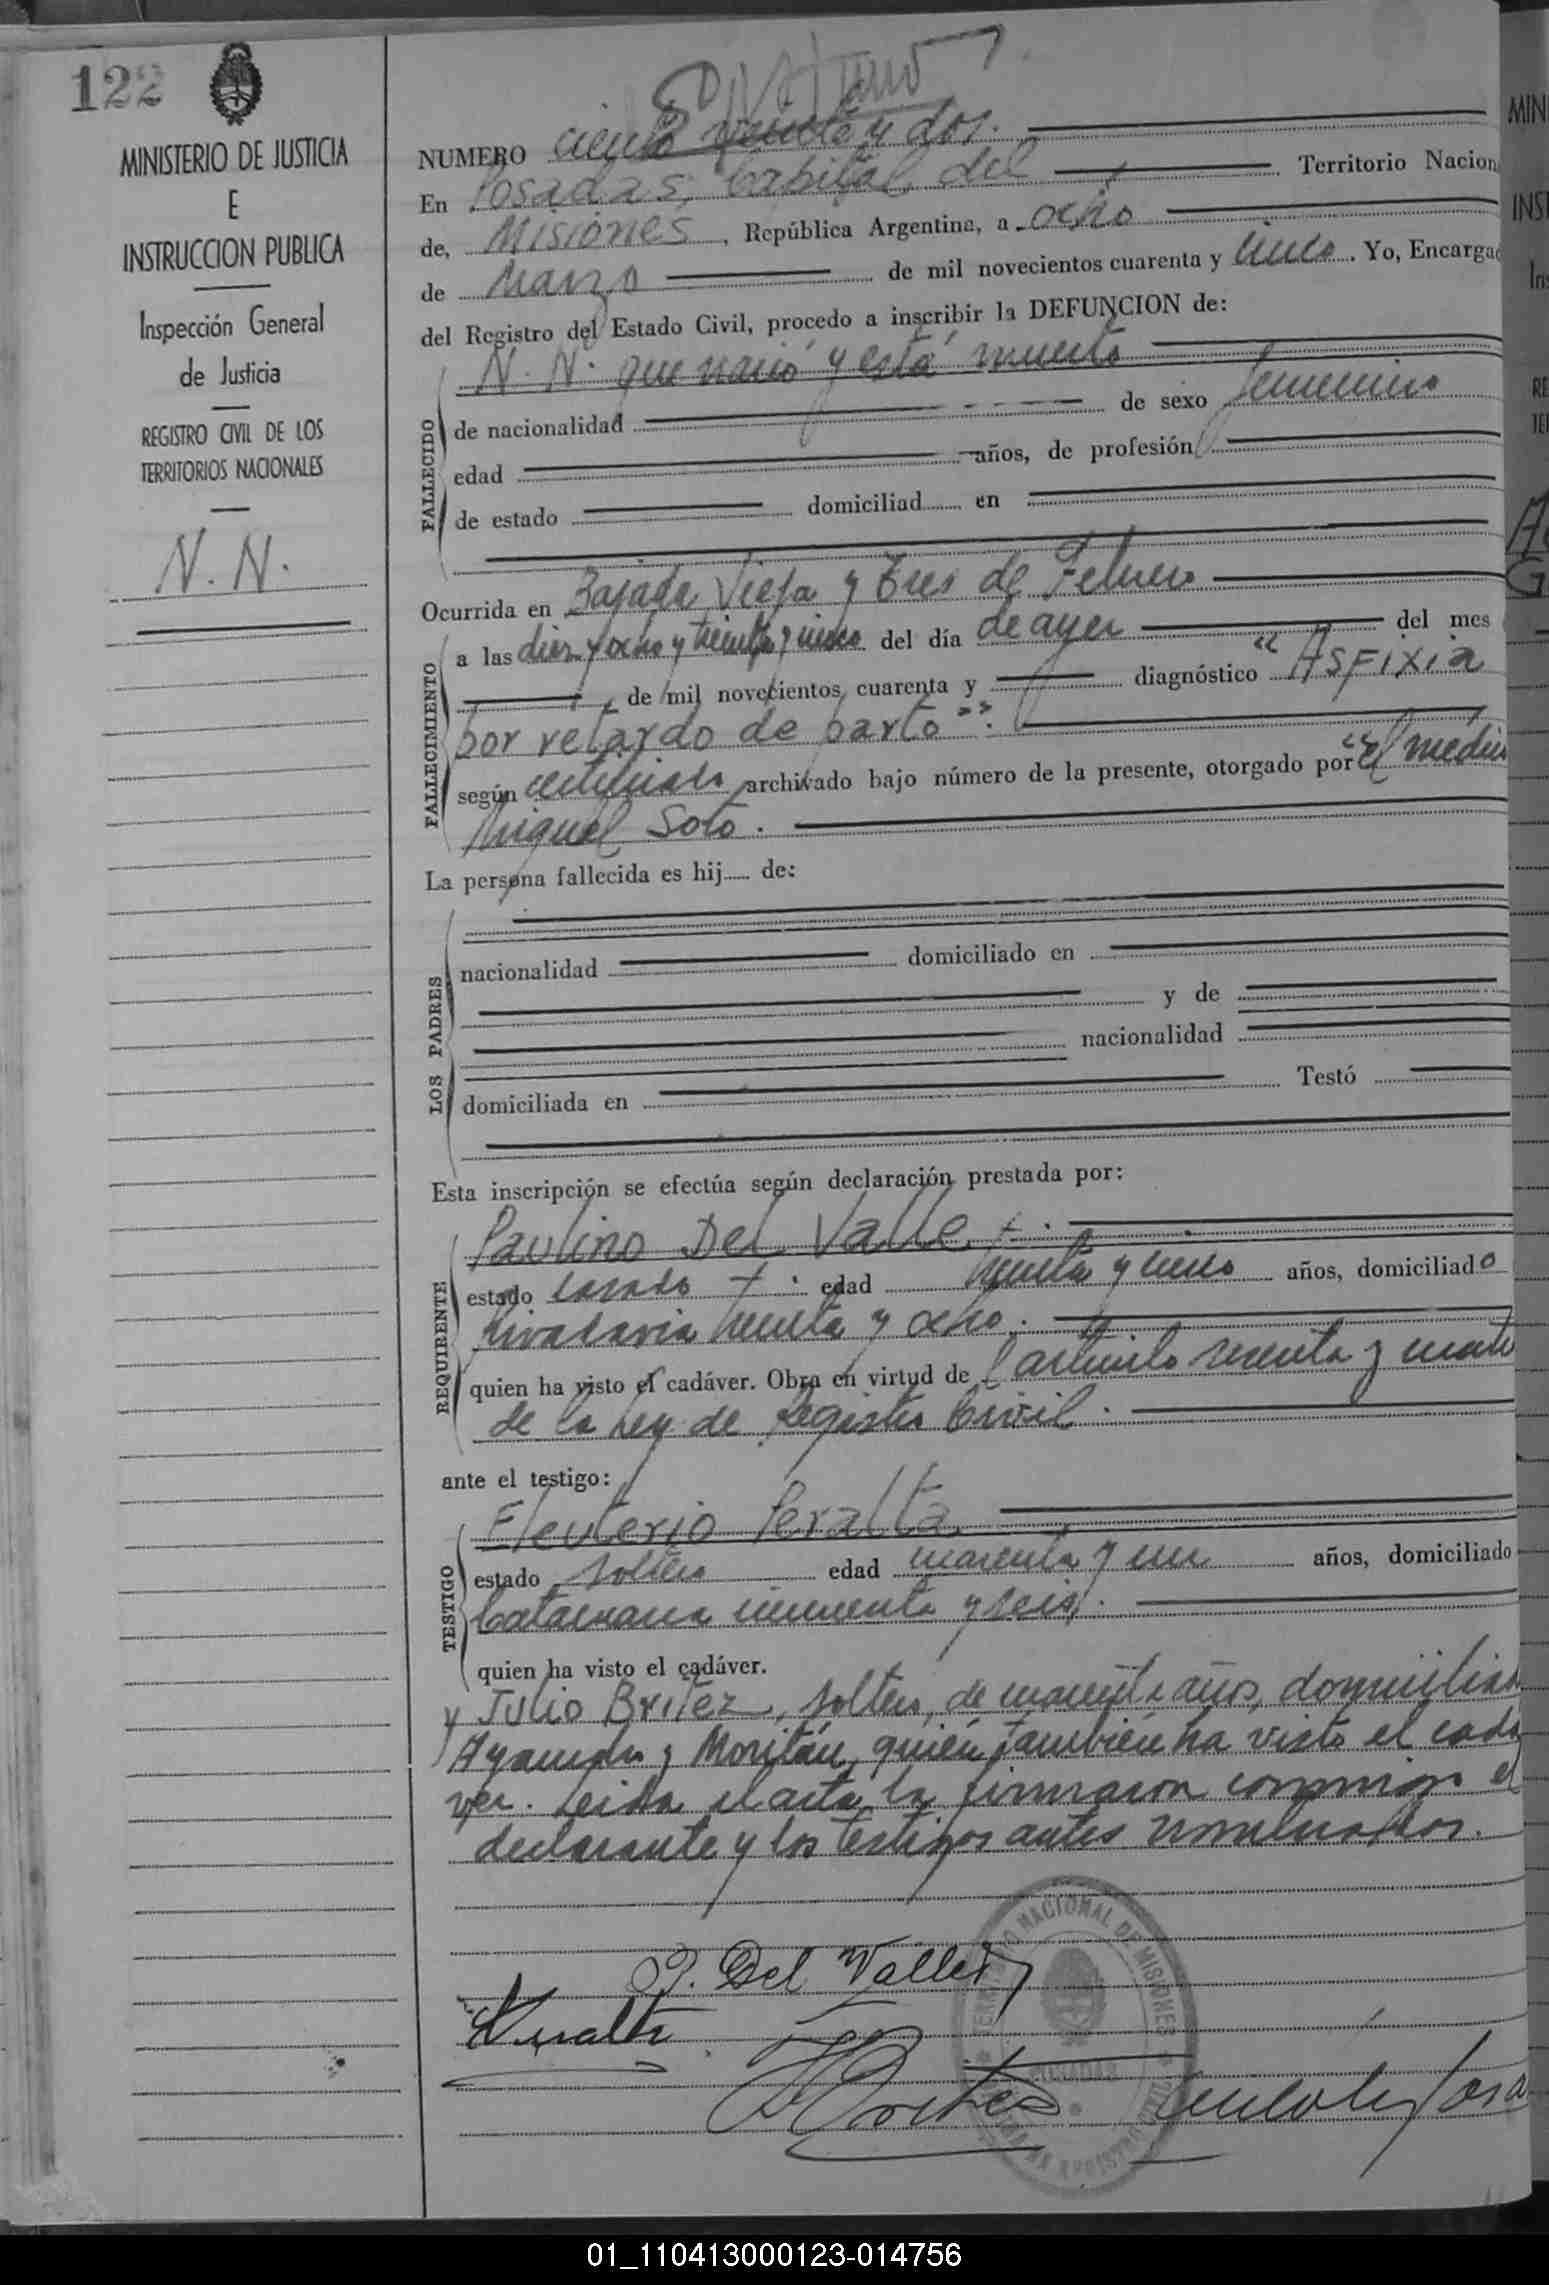 122
MINISTERIO DE JUSTICIA
E
INSTRUCCION PUBLICA
Inspección General
de Justicia
REGISTRO CIVIL DE LOS
TERRITORIOS NACIONALES
N. N.
NUMERO ciento veinte y dos.
En Posadas, Capital del Territorio Nacion
de, Misiones, República Argentina, a ocho
de Marzo de mil novecientos cuarenta y cinco. Yo, Encargad
del Registro del Estado Civil, procedo a inscribir la DEFUNCION de:
FALLECIDO
N. N. que nació y está muerto
de nacionalidad de sexo femenino
edad años, de profesión
de estado domiciliad en
Ocurrida en Bajada Vieja y Tres de Febrero
FALLECIMIENTO
a las diez y ocho y treinta y cinco del día de ayer del mes
de mil novecientos cuarenta y diagnóstico "Asfixia
por retardo de parto".
según certificado archivado bajo número de la presente, otorgado por "el médico
Miguel Soto.
La persona fallecida es hij de:
LOS PADRES
nacionalidad domiciliado en
y de
nacionalidad
domiciliada en Testó
Esta inscripción se efectúa según declaración prestada por:
REQUIRENTE
Paulino Del Valle
estado casado edad treinta y cinco años, domiciliado
Rivadavia treinta y ocho.
quien ha visto el cadáver. Obra en virtud de l artículo sesenta y cuatro
de la Ley de Registro Civil.
ante el testigo:
TESTIGO
Eleuterio Peralta
estado soltero edad cuarenta y un años, domiciliado
Catamarca cincuenta y seis.
quien ha visto el cadáver.
y Julio Britez, soltero, de cuarenta años, domiciliado
Ayacucho y Moritán, quién también ha visto el cadá
ver. Leída el acta, la firmaron conmigo el
declarante y los testigos antes nombrados.
P. Del Valle
Peralta
Britez
TERRITORIO NACIONAL DE MISIONES
POSADAS
MIN
INST
Ins
RE
TER
01_110413000123-014756